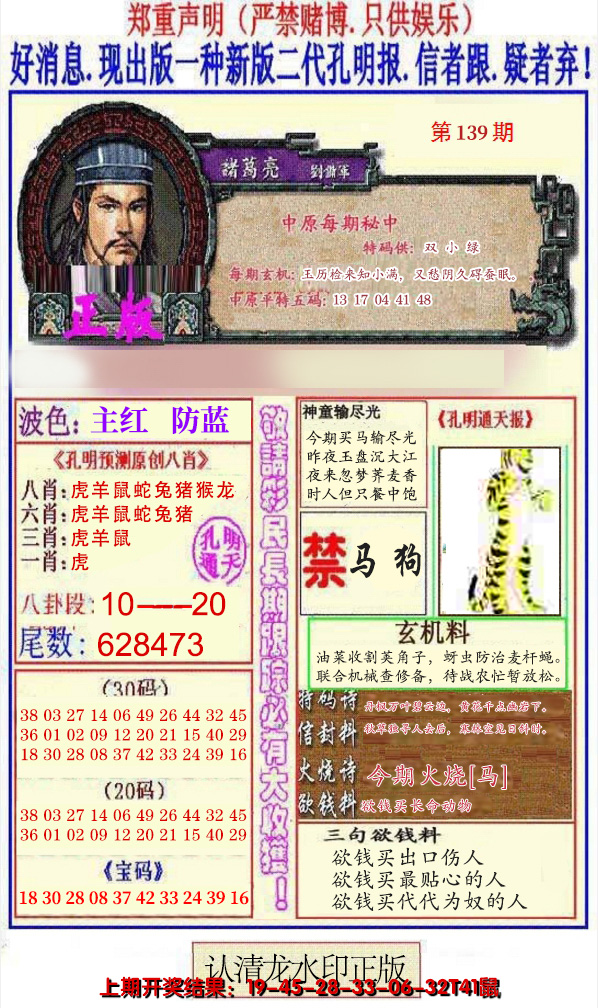 郑重声明（严禁赌博.只供娱乐）
好消息.现出版一种新版二代孔明报.信者跟.疑者弃！
第139期
諸葛亮 劉備軍
中原每期秘中
特码供：双小绿
每期玄机：玉历检来知小满，又愁阴久碍蚕眠。
中原平特五码：13 17 04 41 48
正版
波色：主红 防蓝
《孔明预测原创八肖》
八肖：虎羊鼠蛇兔猪猴龙
六肖：虎羊鼠蛇兔猪
三肖：虎羊鼠
一肖：虎
孔明
通天
八卦段：10——20
尾数：628473
（30码）
38 03 27 14 06 49 26 44 32 45
36 01 02 09 12 20 21 15 40 29
18 30 28 08 37 42 33 24 39 16
（20码）
38 03 27 14 06 49 26 44 32 45
36 01 02 09 12 20 21 15 40 29
《宝码》
18 30 28 08 37 42 33 24 39 16
敬請彩民長期跟踪必有大收獲！
神童输尽光
今期买马输尽光
昨夜玉盘沉大江
夜来忽梦荞麦香
时人但只餐中饱
《孔明通天报》
禁 马 狗
玄机料
油菜收割荚角子，蚜虫防治麦杆蝇。
联合机械查修备，待战农忙暂放松。
特码诗 丹枫万叶碧云边，黄花千点幽岩下。
信封料 秋草独寻人去后，寒林空见日斜时。
火烧诗 今期火烧[马]
欲钱料 欲钱买长命动物
三句欲钱料
欲钱买出口伤人
欲钱买最贴心的人
欲钱买代代为奴的人
认清龙水印正版
上期开奖结果：19-45-28-33-06-32T41鼠